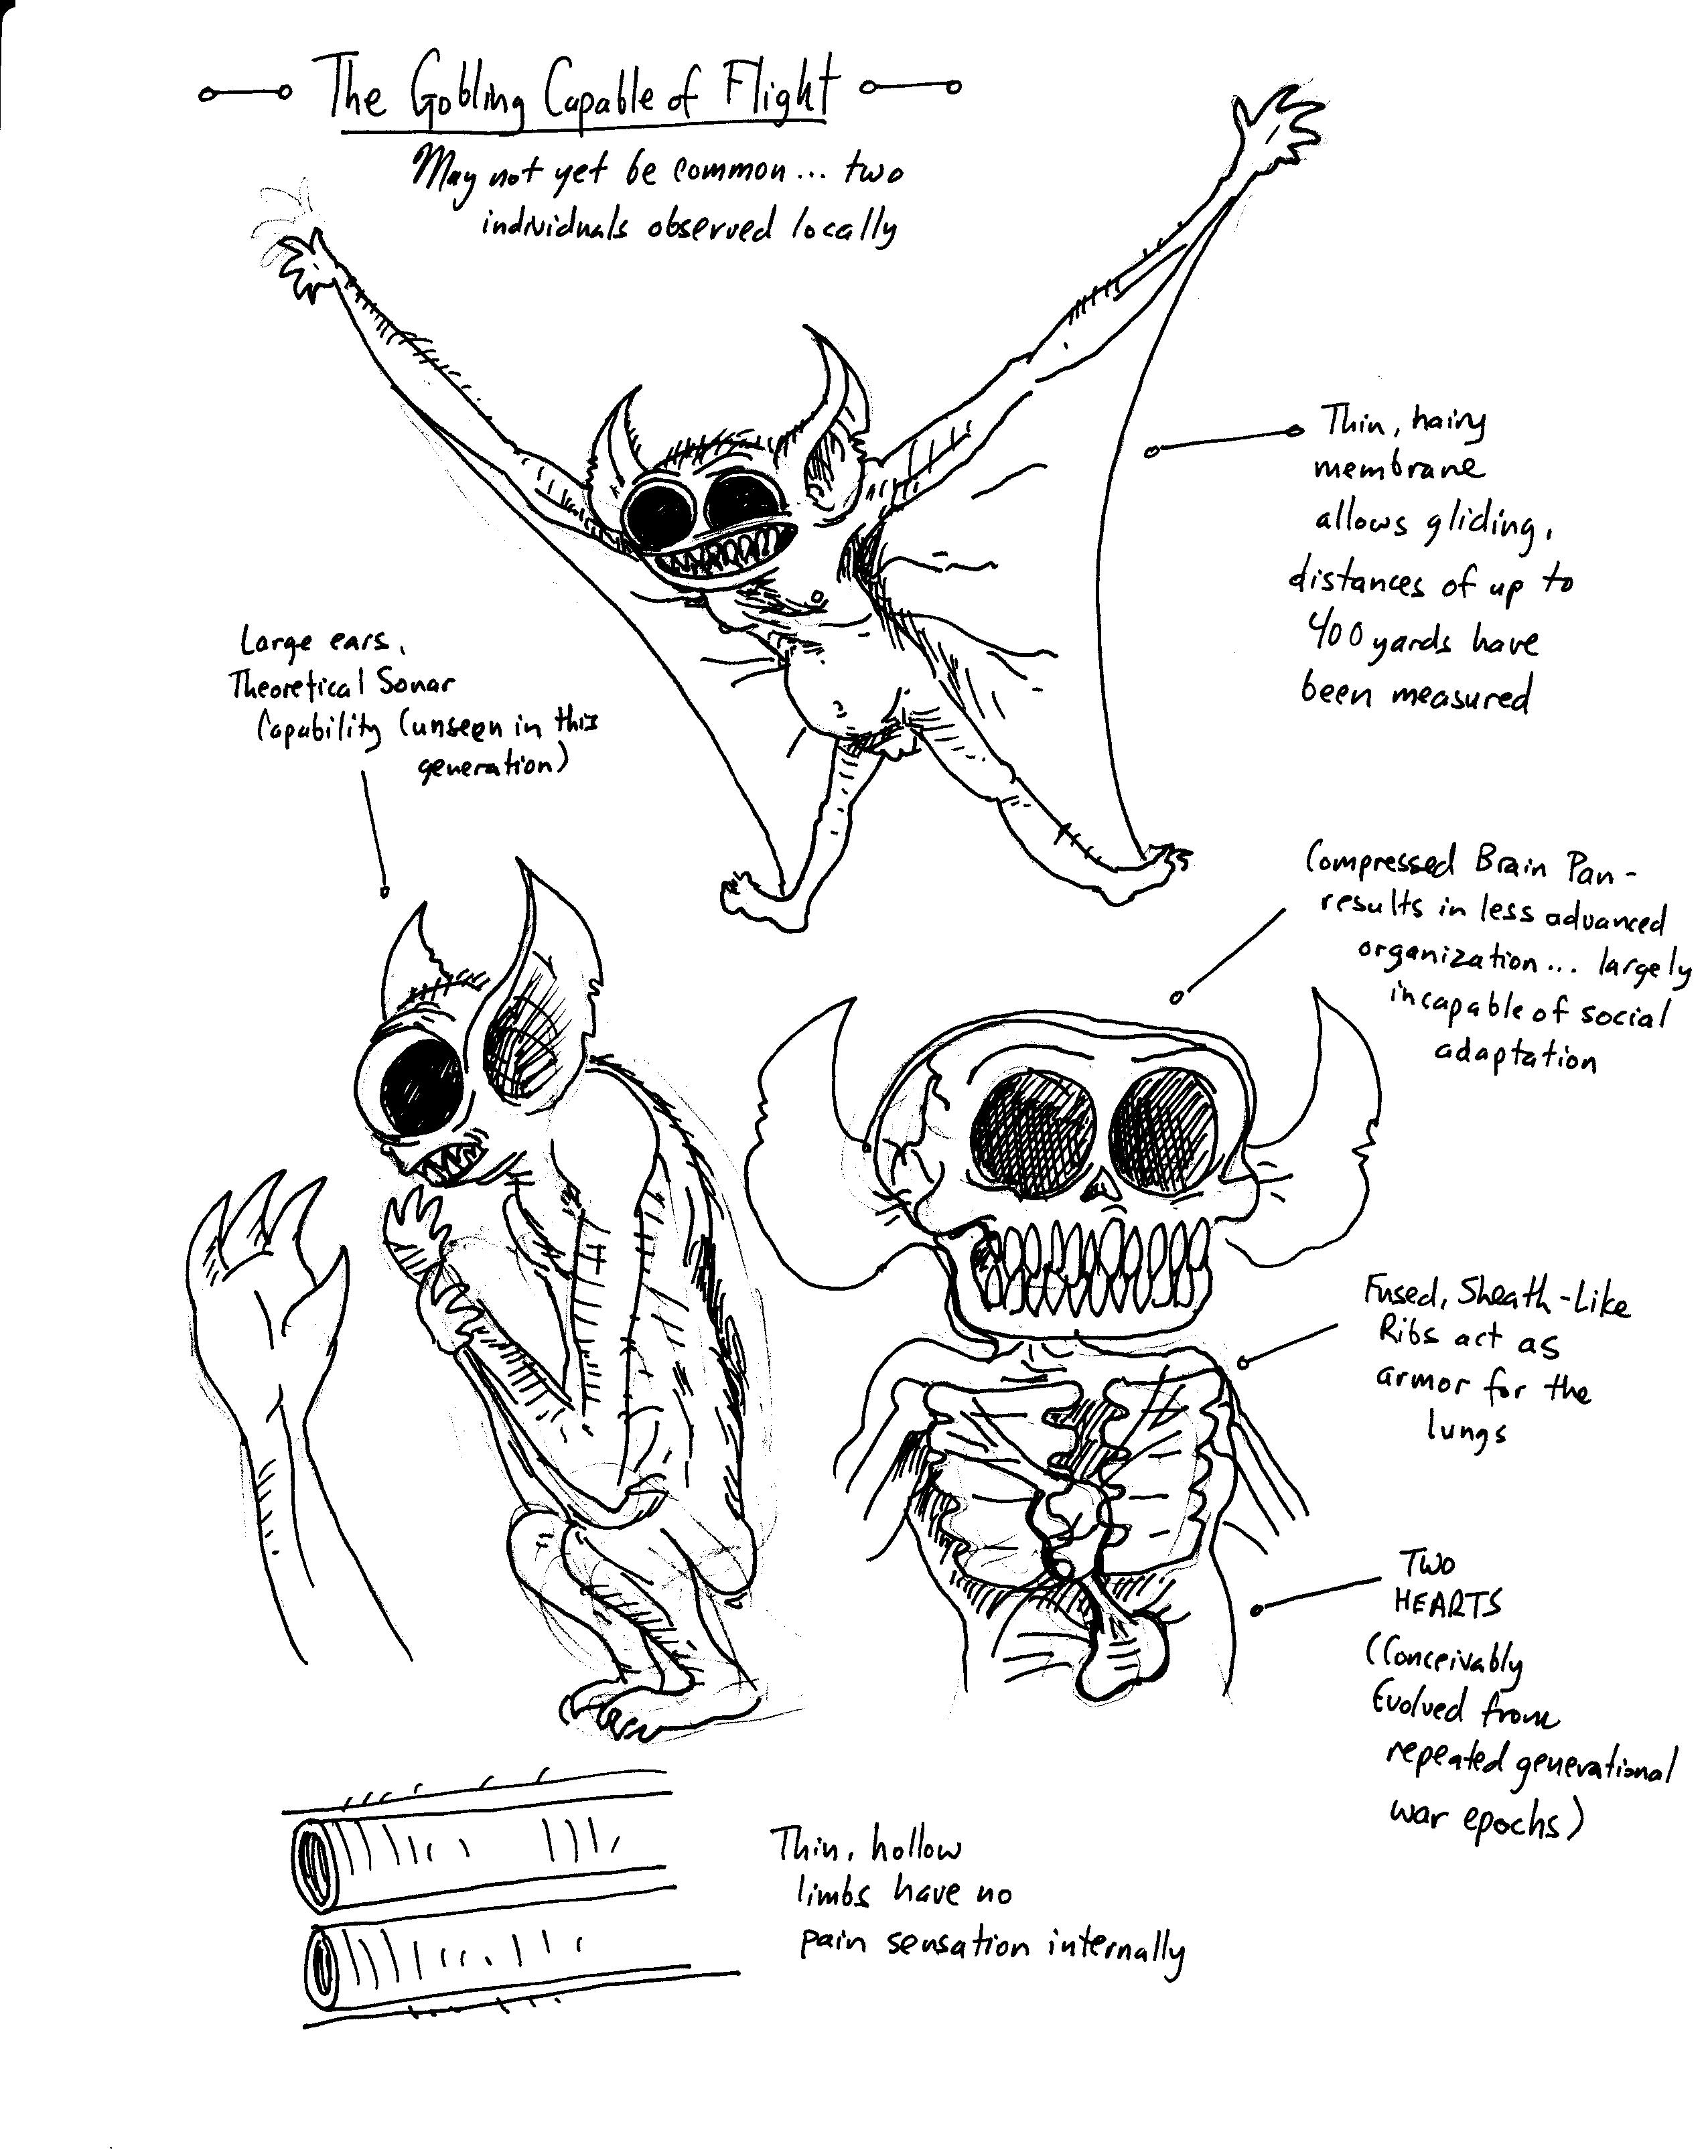 The Gobling Capable of Flight
May not yet be common... two
individuals observed locally
Thin, hairy
membrane
allows gliding,
distances of up to
400 yards have
been measured
Large ears,
Theoretical Sonar
Capability (unseen in this
generation)
Compressed Brain Pan-
results in less advanced
organization... largely
incapable of social
adaptation
Fused, Sheath-Like
Ribs act as
armor for the
lungs
TWO
HEARTS
(Conceivably
Evolved from
repeated generational
war epochs)
Thin, hollow
limbs have no
pain sensation internally